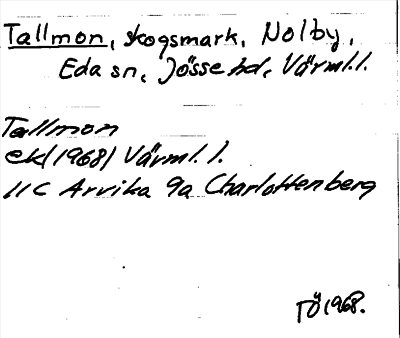 Tallmon, skogsmark, Nolby,
Eda sn, Jösse hd, Värml.l.
Tallmon
ek(1968) Värml. l.
11C Arvika 9a Charlottenberg
TÖ 1968.